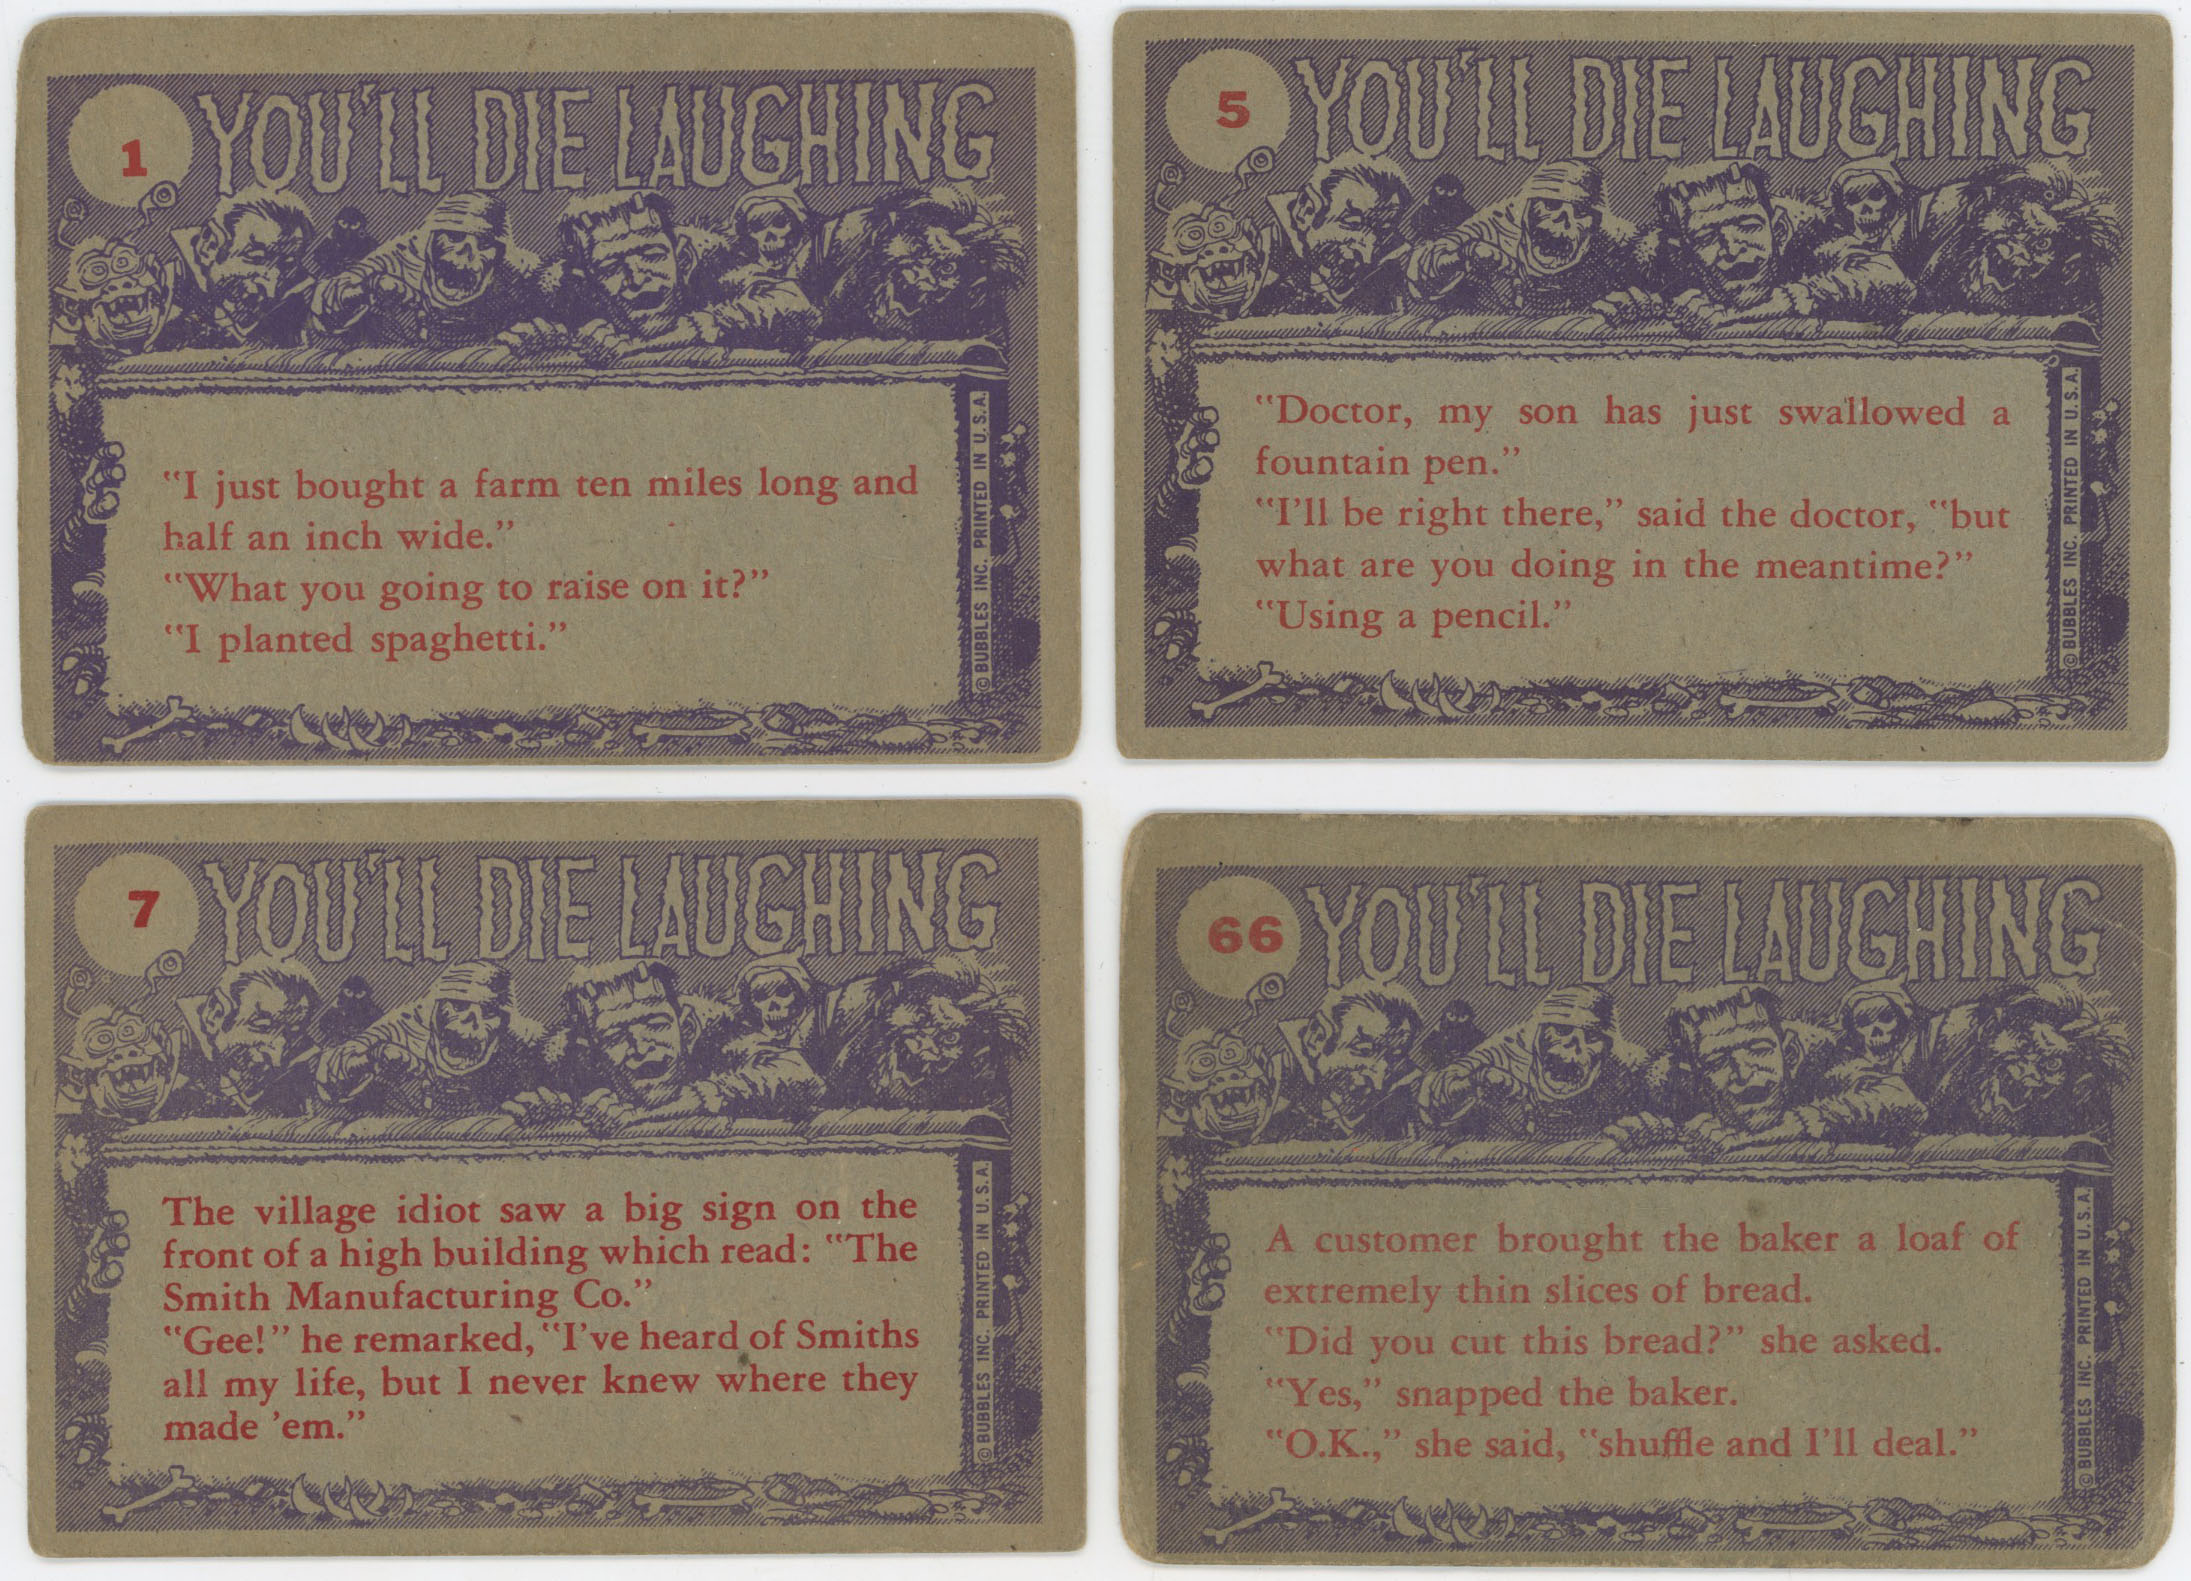 1
YOU'LL DIE LAUGHING
"I just bought a farm ten miles long and
half an inch wide."
"What you going to raise on it?"
"I planted spaghetti."
© BUBBLES INC. PRINTED IN U.S.A.
5
YOU'LL DIE LAUGHING
"Doctor, my son has just swallowed a
fountain pen."
"I'll be right there," said the doctor, "but
what are you doing in the meantime?"
"Using a pencil."
© BUBBLES INC. PRINTED IN U.S.A.
7
YOU'LL DIE LAUGHING
The village idiot saw a big sign on the
front of a high building which read: "The
Smith Manufacturing Co."
"Gee!" he remarked, "I've heard of Smiths
all my life, but I never knew where they
made 'em."
© BUBBLES INC. PRINTED IN U.S.A.
66
YOU'LL DIE LAUGHING
A customer brought the baker a loaf of
extremely thin slices of bread.
"Did you cut this bread?" she asked.
"Yes," snapped the baker.
"O.K.," she said, "shuffle and I'll deal."
© BUBBLES INC. PRINTED IN U.S.A.